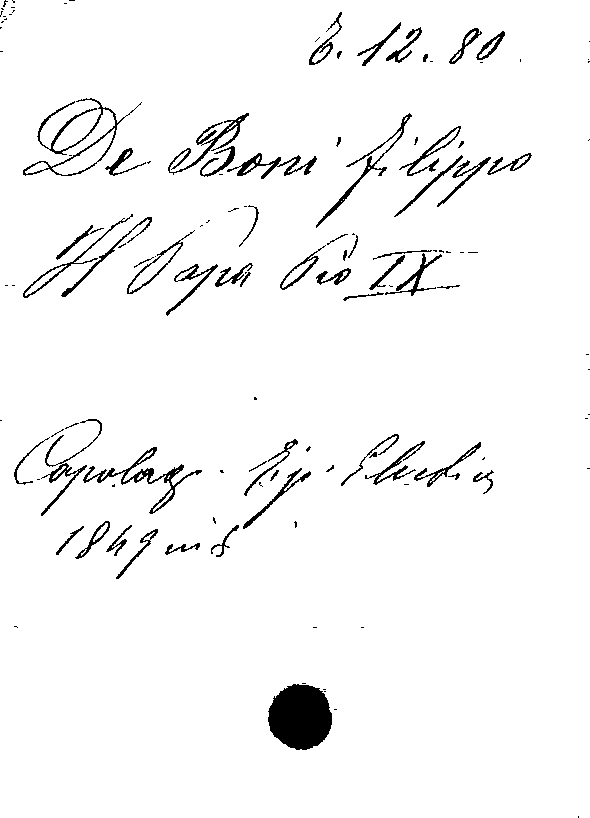 E. 12. 80
De Boni Filippo
Il Papa Pio IX
Capolag. Tip. Elvetica
1849 in 8